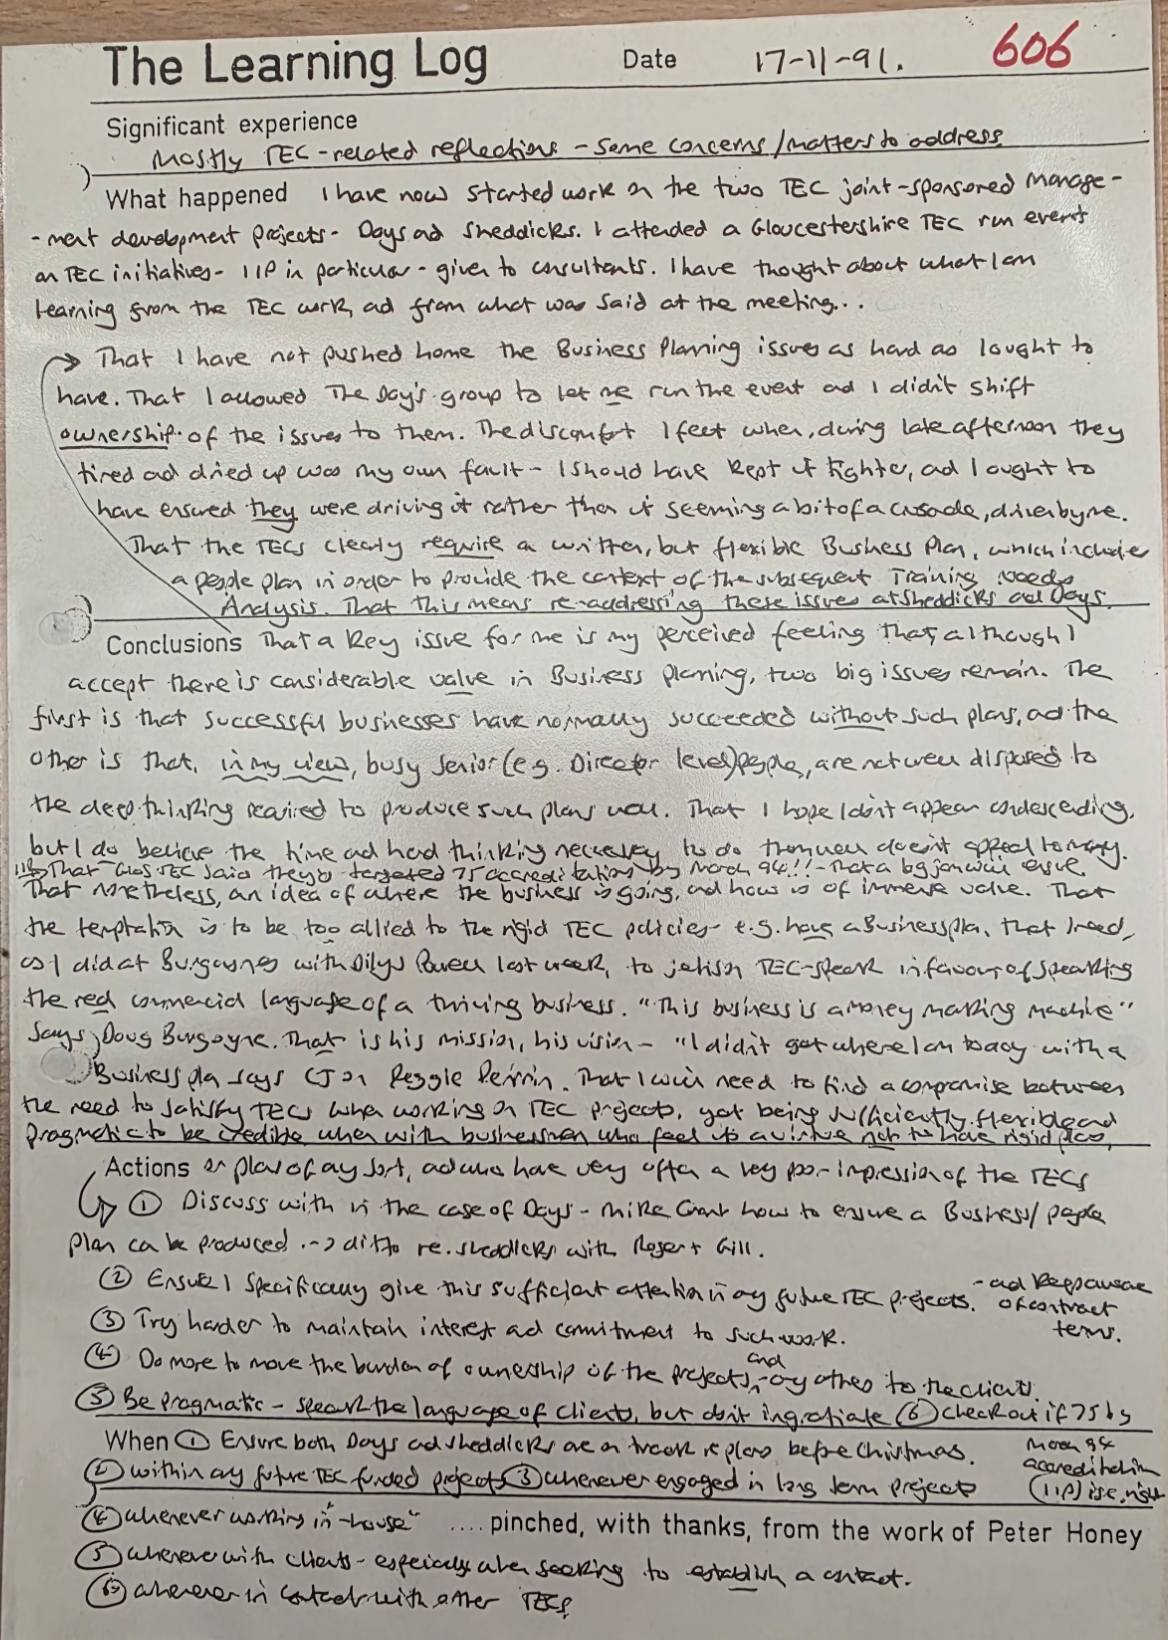 The Learning Log Date 17-11-91. 606
Significant experience
Mostly TEC-related reflections - some concerns/matters to address
What happened I have now started work on the two TEC joint-sponsored manage-
-ment development projects - Days ad Sheddicks. I attended a Gloucestershire TEC run event
on TEC initiatives - IIP in particular - given to consultants. I have thought about what I am
learning from the TEC work, ad from what was said at the meeting...
That I have not pushed home the Business Planning issues as hard as I ought to
have. That I allowed The Day's group to let me run the event ad I didn't shift
ownership of the issues to them. The discomfort I feel when, during late afternoon they
tired ad dried up was my own fault - I should have kept it tighter, ad I ought to
have ensured they were driving it rather than it seeming a bit of a crusade, driven by me.
That the TECs clearly require a written, but flexible Business Plan, which includes
a people plan in order to provide the context of the subsequent Training Needs
Analysis. That this means re-addressing these issues at Sheddicks ad Days.
Conclusions That a key issue for me is my perceived feeling that, although I
accept there is considerable value in Business planning, two big issues remain. The
first is that successful businesses have normally succeeded without such plans, ad the
other is that, in my view, busy senior (e.g. Director level) people, are not well disposed to
the deep thinking required to produce such plans well. That I hope I don't appear condescending,
but I do believe the time ad hard thinking necessary to do them well doesn't appeal to many.
That Glos TEC said they'd targeted 75 accreditations by March 94!! - That a big will ensue
That nonetheless, an idea of where the business is going, ad how is of immense value. That
the temptation is to be too allied to the rigid TEC policies - e.g. have a Business plan, that I need,
as I did at Burgoynes with Dilys Powell last week, to jetison TEC-speak in favour of speaking
the real commercial language of a thriving business. "This business is a money making machine"
says Doug Burgoyne. That is his mission, his vision - "I didn't get where I am today with a
Business plan says CJ on Reggie Perrin. That I will need to find a compromise between
the need to satisfy TECs when working on TEC projects, yet being sufficiently flexible ad
pragmatic to be credible when with businessmen who feel its a virtue not to have rigid plans,
Actions or plans of any sort, ad who have very often a very poor impression of the TECs
① Discuss with in the case of Days - Mike Grant how to ensure a Business/people
plan can be produced. --> ditto re. Sheddicks with Robert Gill.
② Ensure I specifically give this sufficient attention in any future TEC projects. - ad
of contract
terms.
③ Try harder to maintain interest ad commitment to such work.
④ Do more to move the burden of ownership of the projects, and any others to the clients.
⑤ Be pragmatic - speak the language of clients, but don't ingratiate ⑥ check out if 75 by
March 94
accreditation
(IIP) is right
When ① Ensure both Days ad Sheddicks are on track re plans before Christmas.
② within any future TEC funded projects ③ whenever engaged in long term projects
④ whenever working in-house" .... pinched, with thanks, from the work of Peter Honey
⑤ whenever with clients - especially when seeking to establish a contact.
⑥ whenever in contact with other TECs